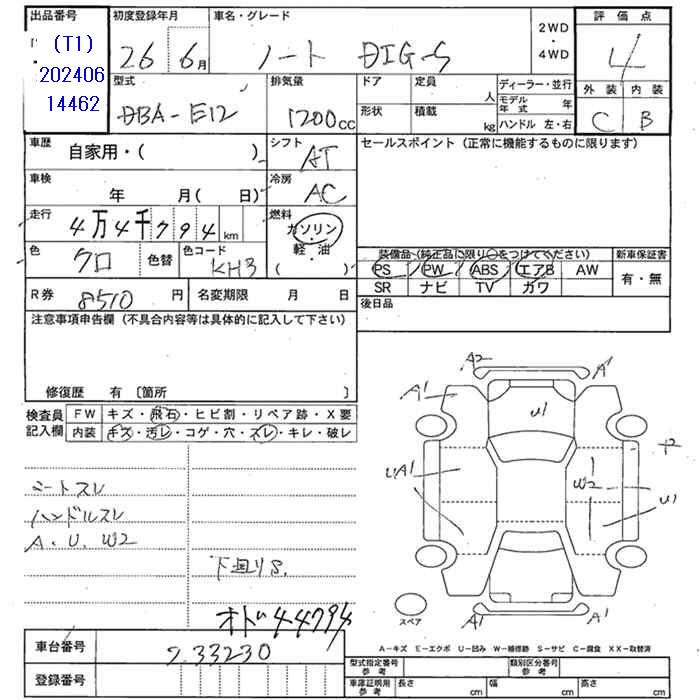 出品番号 初度登録年月 車名・グレード
(T1)
202406
14462
26 6月 ノート DIG-S
2WD
・
4WD
評価点
4
外装 内装
C B
型式 排気量 ドア 定員 ディーラー・並行
DBA-E12 1200cc 人 モデル年式 年
形状 積載 kg ハンドル 左・右
車歴 シフト セールスポイント (正常に機能するものに限ります)
自家用・( ) AT
車検 冷房
年 月( 日) AC
走行 燃料
4万4千794km ガソリン・
軽・油
( )
色 クロ 色替 色コード KH3
装備品(純正品に限り○をつけてください) 新車保証書
PS PW ABS エアB AW 有・無
SR ナビ TV カワ
R券 8510円 名変期限 月 日
後日品
注意事項申告欄 (不具合内容等は具体的に記入して下さい)
修復歴 有〔箇所 〕
検査員記入欄 FW キズ・飛石・ヒビ割・リペア跡・X要
内装 キズ・汚レ・コゲ・穴・スレ・キレ・破レ
A2 A1
A1
U1
UA1 W2 U1
シートスレ
ハンドルスレ
A.U.W2
下回りS.
オド44794
A1 A1
スペア
A-キズ E-エクボ U-凹み W-補修跡 S-サビ C-腐食 XX-取替済
車台番号 233230
登録番号
型式指定番号 参考 類別区分番号 参考
車庫証明用 参考 長さ cm 幅 cm 高さ cm